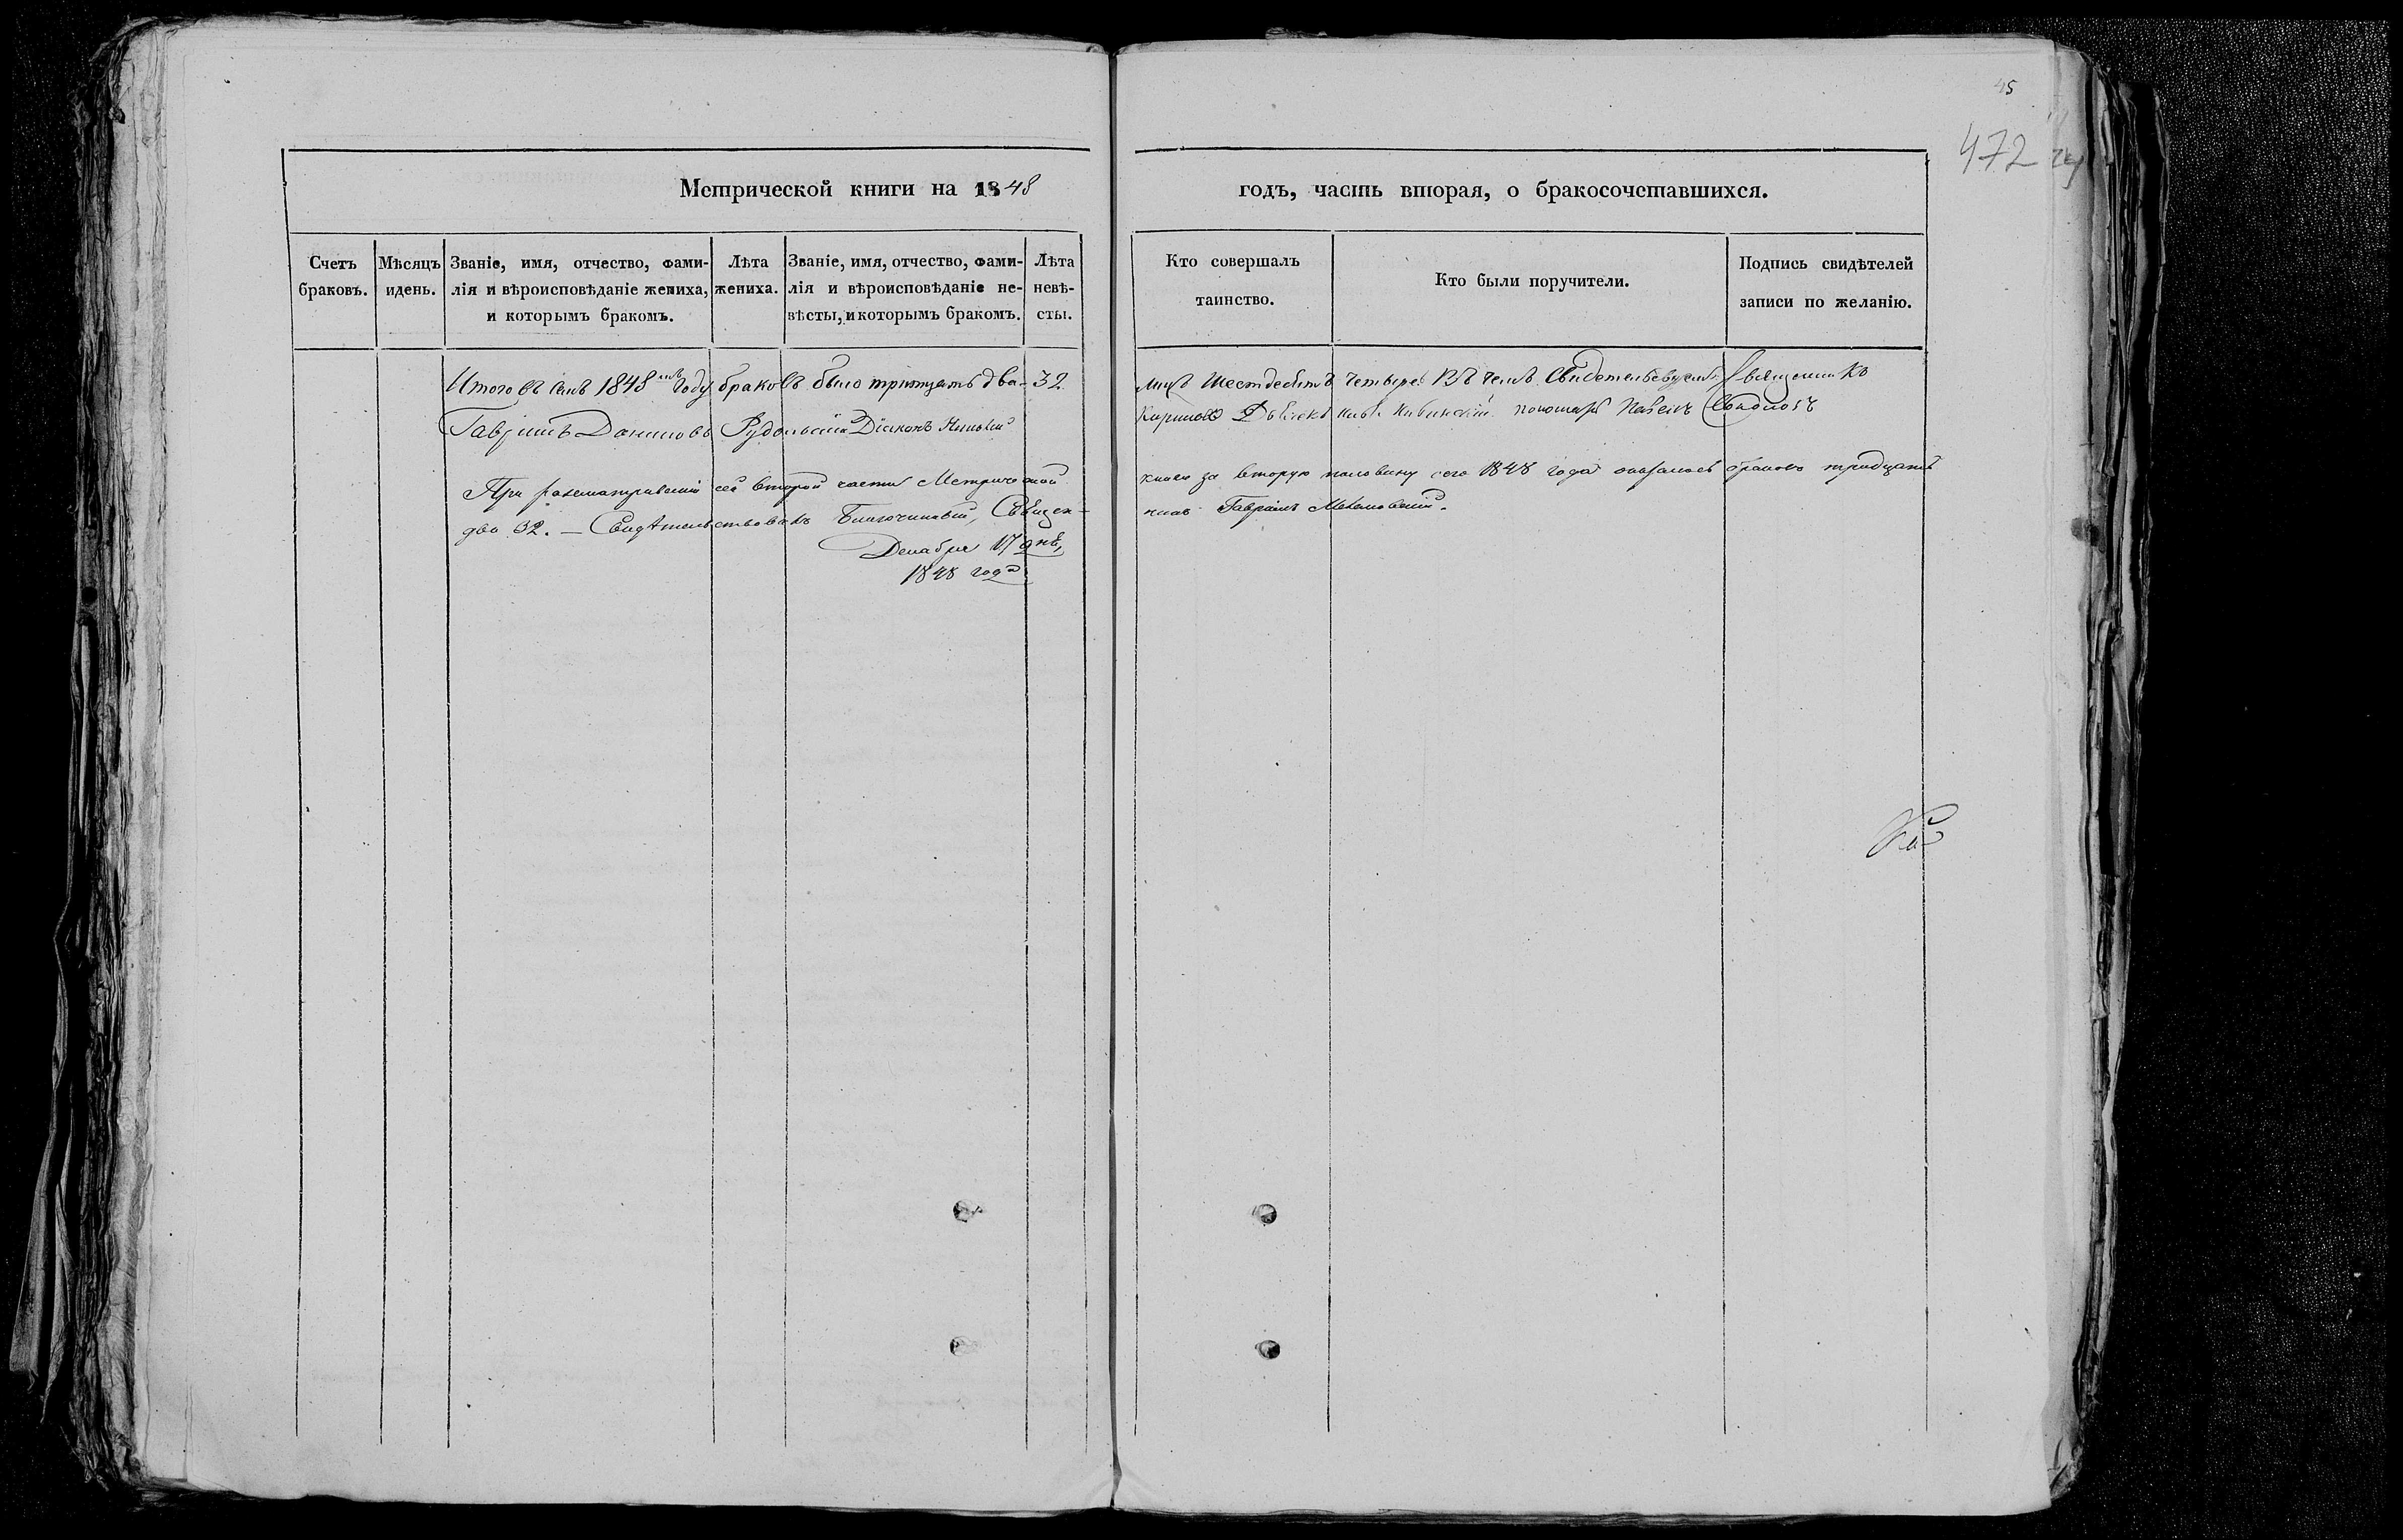 45
472
Метрической книги на 1848
годъ, часть вторая, о бракосочетавшихся.
Счетъ браковъ.
Мѣсяцъ и день.
Званіе, имя, отчество, фами-
лія и вѣроисповѣданіе жениха,
и которымъ бракомъ.
Лѣта
жениха.
Званіе, имя, отчество, фами-
лія и вѣроисповѣданіе не-
вѣсты, и которымъ бракомъ.
Лѣта
невѣ-
сты.
Кто совершалъ
таинство.
Кто были поручители.
Подпись свидѣтелей
записи по желанію.
Итого въ 1848 году браковъ было тритцать два 32.
лицъ шестдесятъ четыре. Въ чемъ свидетельствуемъ Священникъ
Гавріилъ Даниловъ Діаконъ
пономарь
При разсматриваніи сей второй части Метрической
книги за вторую половину сего 1848 года оказалось браковъ тридцать
два 32. — Свидѣтельствовалъ Благочинный, Священ-
никъ Гавріилъ
Декабря 17 дня,
1848 года